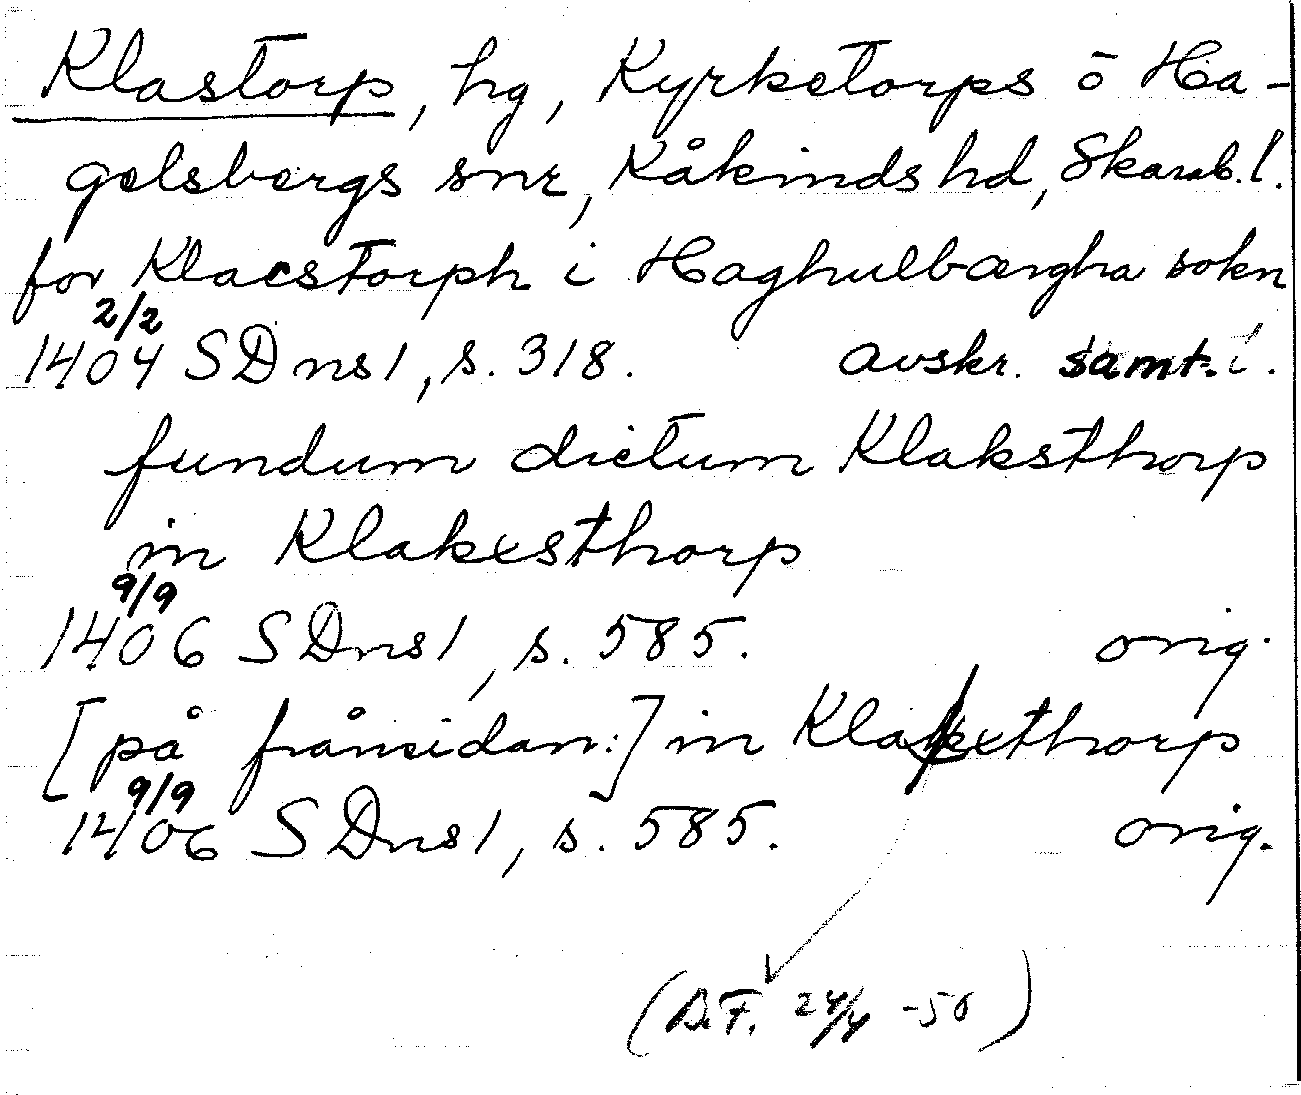 Klastorp, hg, Kyrketorps o Ha-
gelsbergs snr, Kåkinds hd, Skarab. l.
for Klacstorph i Haghulbærgha sokn
2/2
1404 SDns1, s. 318. avskr. samt. i.
fundum dictum Klaksthorp
in Klakxsthorp
9/9
1406 SDns1, s. 585. orig.
[på frånsidan:] in Klakxthorp
9/9
1406 SDns1, s. 585. orig.
(D.F. 24/4 -50)